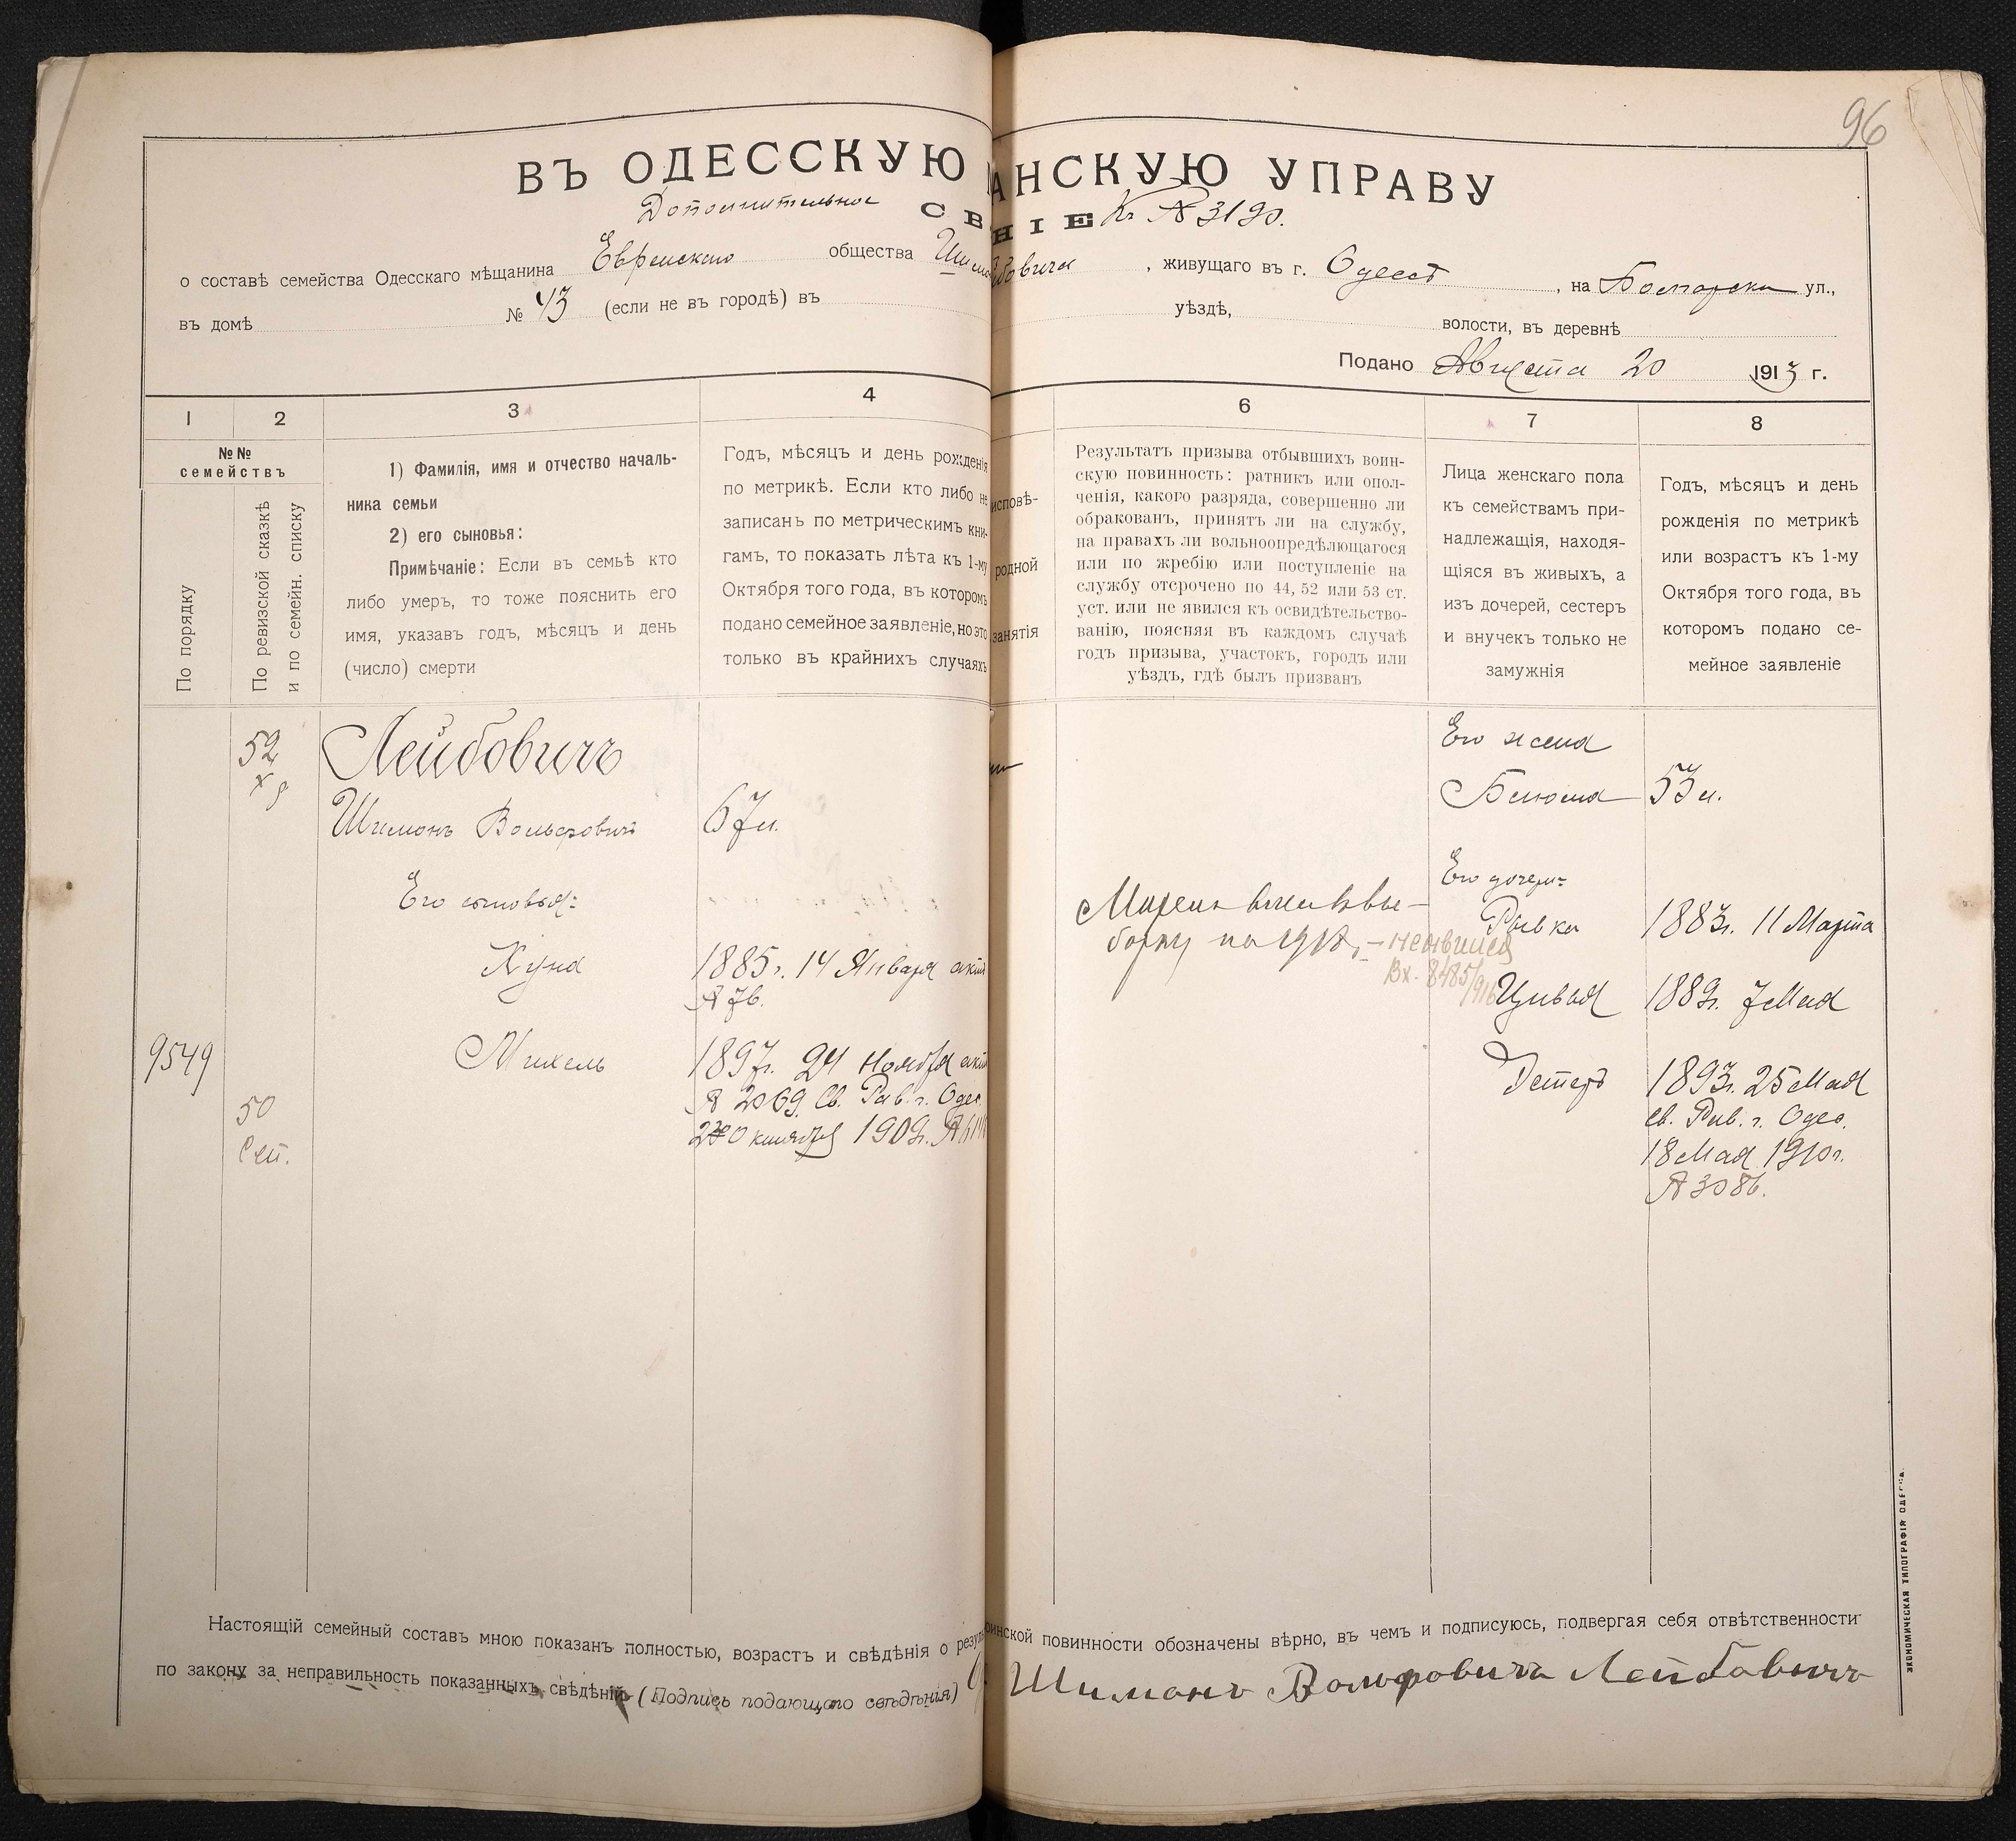 96
ВЪ ОДЕССКУЮ АНСКУЮ УПРАВУ
Дополнительное СВ НІЕ Къ № 3190.
о составѣ семейства Одесскаго мѣщанина Еврейскаго общества Шимо бовича, живущаго въ г. Одессѣ, на Болгарской ул.,
въ домѣ № 43 (если не въ городѣ) въ уѣздѣ, волости, въ деревнѣ
Подано Августа 20 1913 г.
1 2 3 4 6 7 8
№№ семействъ
По порядку
По ревизской сказкѣ
и по семейн. списку
1) Фамилія, имя и отчество началь-
ника семьи
2) его сыновья:
Примѣчаніе: Если въ семьѣ кто
либо умеръ, то тоже пояснить его
имя, указавъ годъ, мѣсяцъ и день
(число) смерти
Годъ, мѣсяцъ и день рожденія
по метрикѣ. Если кто либо не
записанъ по метрическимъ кни-
гамъ, то показать лѣта къ 1-му
Октября того года, въ которомъ
подано семейное заявленіе, но это
только въ крайнихъ случаяхъ
исповѣ-
родной
занятія
Результатъ призыва отбывшихъ воин-
скую повинность: ратникъ или опол-
ченія, какого разряда, совершенно ли
обракованъ, принятъ ли на службу,
на правахъ ли вольноопредѣлющагося
или по жребію или поступленіе на
службу отсрочено по 44, 52 или 53 ст.
уст. или не явился къ освидѣтельство-
ванію, поясняя въ каждомъ случаѣ
годъ призыва, участокъ, городъ или
уѣздъ, гдѣ былъ призванъ
Лица женскаго пола
къ семействамъ при-
надлежащія, находя-
щіяся въ живыхъ, а
изъ дочерей, сестеръ
и внучекъ только не
замужнія
Годъ, мѣсяцъ и день
рожденія по метрикѣ
или возрастъ къ 1-му
Октября того года, въ
которомъ подано се-
мейное заявленіе
52
Лейбовичъ
Шимонъ Вольфовичъ 67 л.
Его сыновья:
Хуна 1885 г. 14 Января акт
№ 76.
9549 Михель 1897 г. 24 Ноября акт
№ 2069. Св. Рав. г. Одес.
Октября 1909 г. №
50
Сем.
Михель внесен въ вы-
борку на 1918 г. – неявился
Вх. 8485/916
Его жена
Бенюма 53 л.
Его дочери:
Рывка 1883 г. 11 Марта
Цивья 1889 г. 7 Мая
Эстеръ 1893 г. 25 Мая
св. Рав. г. Одес.
18 Мая 1910 г.
№ 3086.
Настоящій семейный составъ мною показанъ полностью, возрастъ и свѣдѣнія о резуль оинской повинности обозначены вѣрно, въ чемъ и подписуюсь, подвергая себя отвѣтственности
по закону за неправильность показанныхъ свѣдѣній (Подпись подающаго свѣдѣнія) Шимонъ Вольфовичъ Лейбовичъ
ЭКОНОМИЧЕСКАЯ ТИПОГРАФІЯ ОДЕССА.